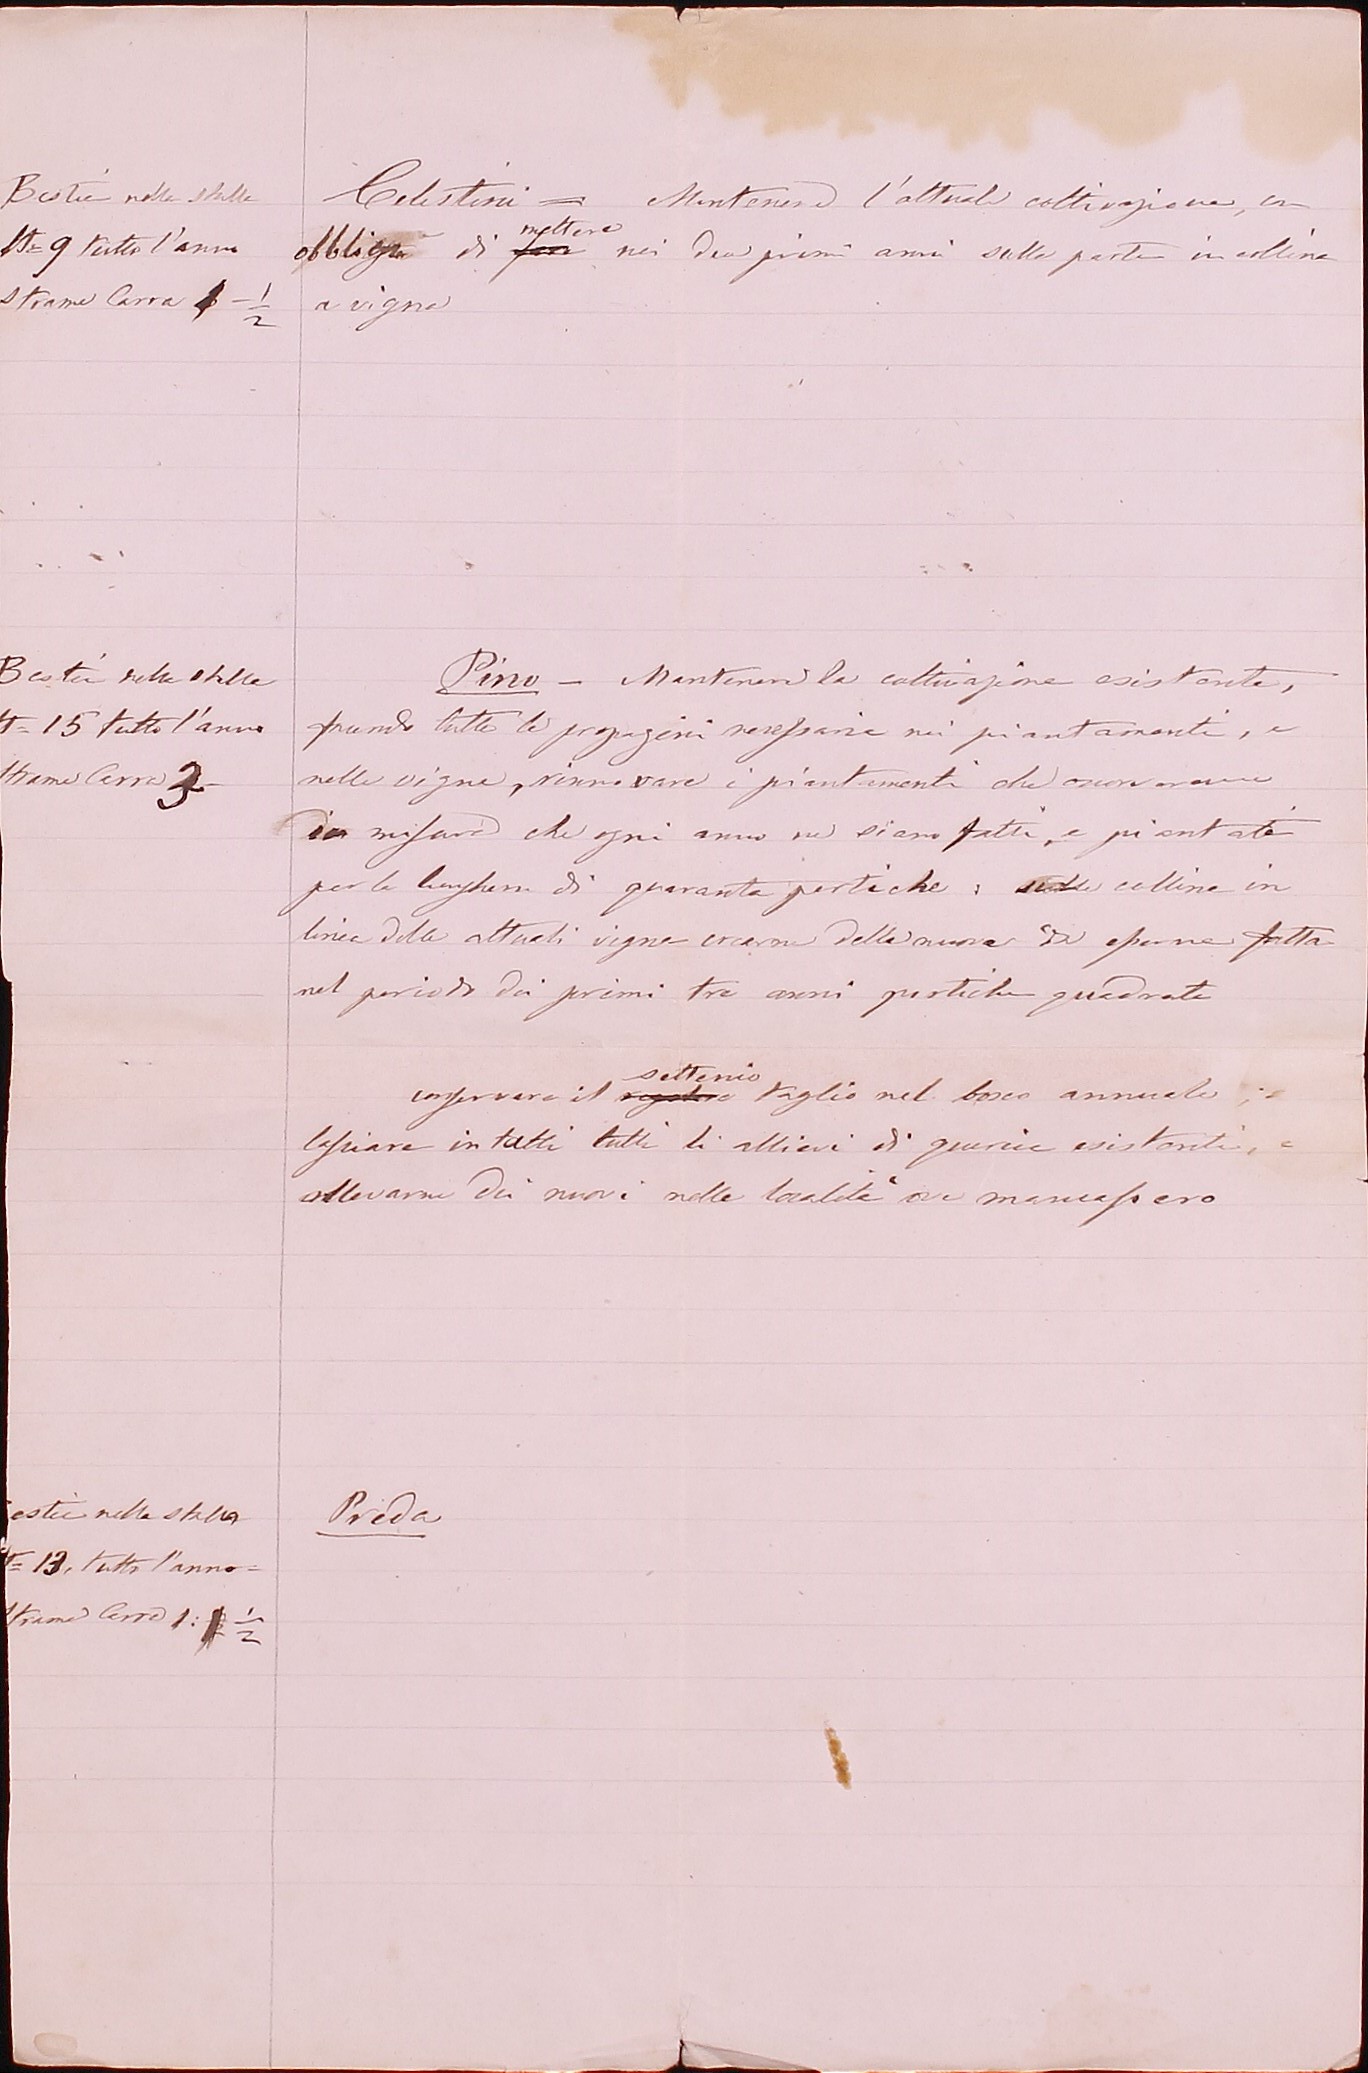 Bestie nelle stalle
N= 9 tutto l'anno
Strame Carra - 1/2
Celestini = Mantenere l'attuale coltivazione, con
mettere
obbligo di fare nei due primi anni sulla parte in collina
a vigna
Bestie nelle stalle
N= 15 tutto l'anno
Strame Carra 3 -
Pino - Mantenere la coltivazione esistente,
facendo tutte le propagini necessarie nei piantamenti, e
nelle vigne, rinnovare i piantamenti che
in misura che ogni anno ne siano fatti, e piantate
per la lunghezza di quaranta pertiche : sulle colline in
linea delle attuali vigne crearne delle nuove da esserne fatta
nel periodo dei primi tre anni pertiche quadrate
settenio
conservare il regolare taglio nel bosco annuale ; e
lasciare intatti tutti li allievi di quercie esistenti, e
allevarne dei nuovi nelle località ove mancassero
Bestie nelle stalle
N= 13, tutto l'anno =
Strame Carra 1: 1/2
Preda